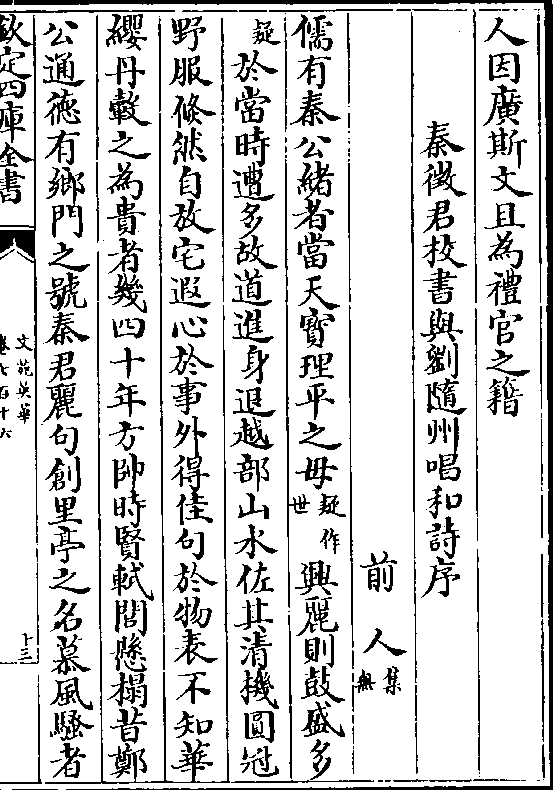 人因廣斯文且為禮官之籍
秦徵君校書與劉隨州唱和詩序
前人集無
儒有秦公緒者當天寳理平之毋疑作世興麗則鼓盛多
疑於當時遭多故道進身退越部山水佐其清機圓冠
野服翛然自放宅遐心於事外得佳句於物表不知華
纓丹轂之為貴者幾四十年方帥時賢軾閭懸榻昔鄭
公通徳有鄉門之號秦君麗句創里亭之名慕風騷者
欽定四庫全書
文苑英華
卷七百十六
十三